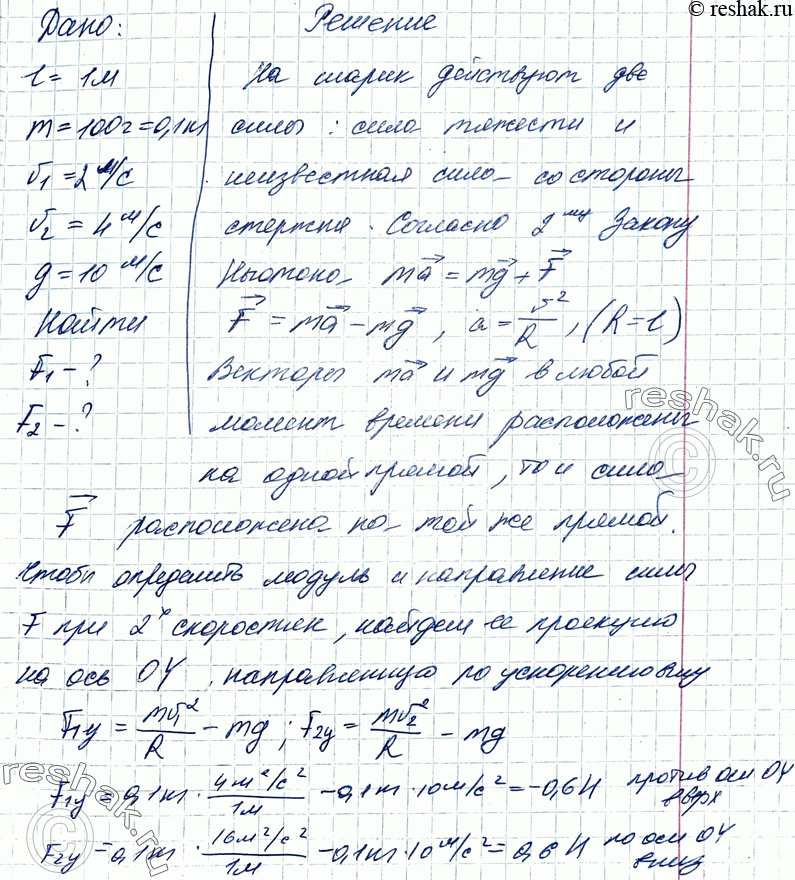 © reshak.ru
Дано: Решение
l = 1м На шарик действуют две
m = 100г = 0,1кг силы: сила тяжести и
v₁ = 2 м/с неизвестная сила со стороны
v₂ = 4 м/с стержня. Согласно 2му Закону
g = 10 м/с Ньютона ma⃗ = mg⃗ + F⃗
Найти F⃗ = ma⃗ − mg⃗, a = v²/R, (R = l)
F₁ − ? Векторы ma⃗ и mg⃗ в любой
F₂ − ? момент времени расположены
на одной прямой, то и сила
F⃗ расположена на той же прямой.
Чтобы определить модуль и направление силы
F при 2х скоростях, найдем ее проекцию
на ось OY, направленную по ускорению вниз
F₁y = mv₁²/R − mg; F₂y = mv₂²/R − mg
F₁y = 0,1кг · 4м²/с²/1м − 0,1кг · 10м/с² = −0,6Н против оси OY вверх
F₂y = 0,1кг · 16м²/с²/1м − 0,1кг · 10м/с² = 0,6Н по оси OY вниз
reshak.ru
reshak.ru